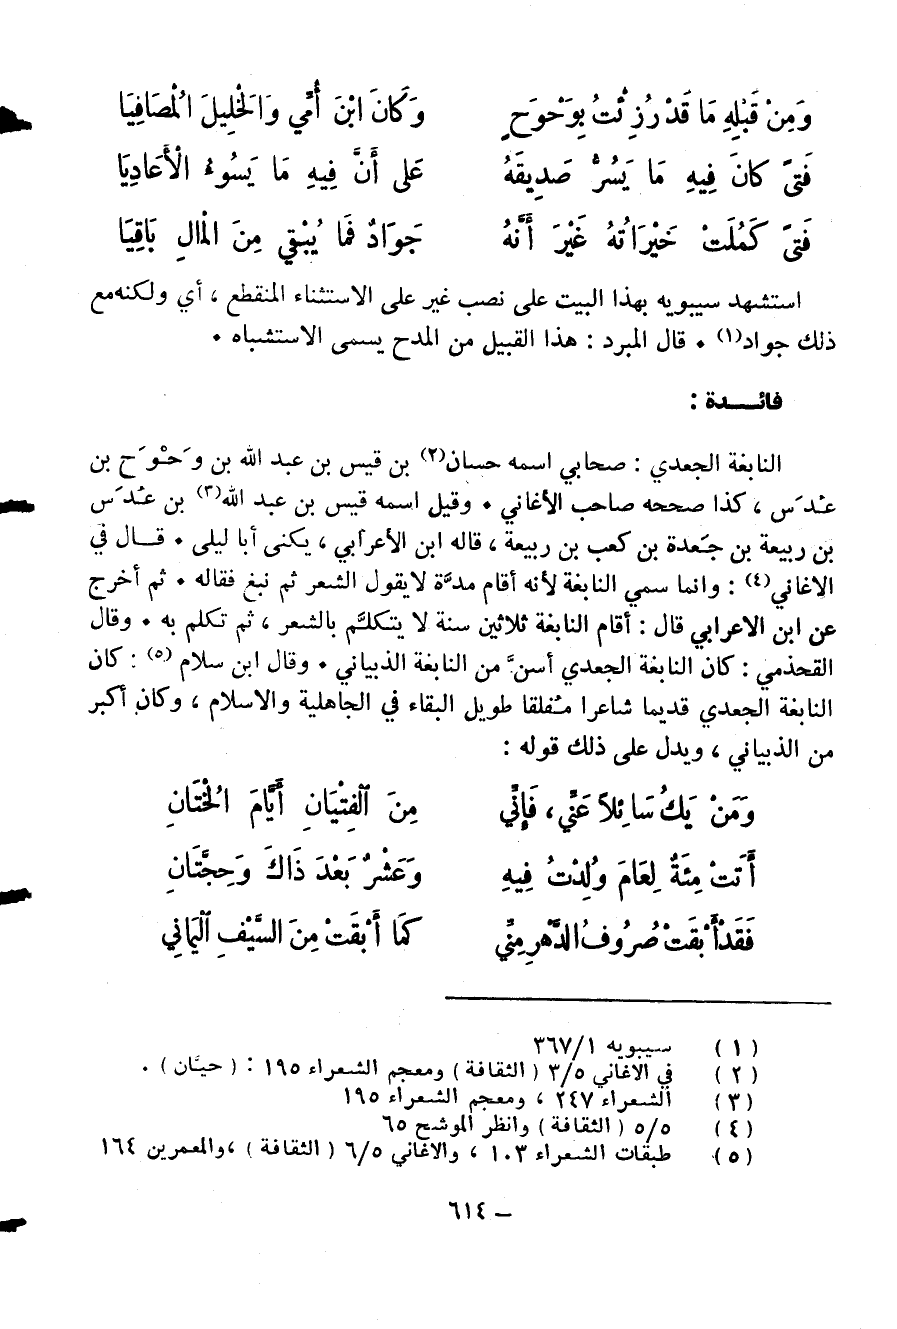 وَمِنْ قَبْلِهِ مَا قَدْ رُزِئْتُ بِوَحْوَحٍ وَكَانَ ابْنَ أُمِّي وَالْخَلِيلَ الْمُصَافِيَا
فَتىً كَانَ فِيهِ مَا يَسُرُّ صَدِيقَهُ عَلى أَنَّ فِيهِ مَا يَسُوءُ الْأَعَادِيَا
فَتىً كَمُلَتْ خَيْرَاتُهُ غَيْرَ أَنَّهُ جَوَادٌ فَمَا يُبْقِي مِنَ الْمَالِ بَاقِيَا
استشهد سيبويه بهذا البيت على نصب غير على الاستثناء المنقطع ، أي ولكنه مع
ذلك جواد(١) ٠ قال المبرد : هذا القبيل من المدح يسمى الاستثباه ٠
فائـــدة :
النابغة الجعدي : صحابي اسمه حسان(٢) بن قيس بن عبد الله بن وَحْوَح بن
عُدَس ، كذا صححه صاحب الأغاني ٠ وقيل اسمه قيس بن عبد الله(٣) بن عُدَس
بن ربيعة بن جَعدة بن كعب بن ربيعة ، قاله ابن الأعرابي ، يكنى أبا ليلى ٠ قــال في
الاغاني(٤) : وانما سمي النابغة لأنه أقام مدَّة لايقول الشعر ثم نبغ فقاله ٠ ثم أخرج
عن ابن الاعرابي قال : أقام النابغة ثلاثين سنة لا يتكلَّم بالشعر ، ثم تكلم به ٠ وقال
القحذمي : كان النابغة الجعدي أسنَّ من النابغة الذبياني ٠ وقال ابن سلام (٥) : كان
النابغة الجعدي قديما شاعرا مُفلقا طويل البقاء في الجاهلية والاسلام ، وكان أكبر
من الذبياني ، ويدل على ذلك قوله :
وَمَنْ يَكُ سَائِلاً عَنِّي ، فَإِنِّي مِنَ الْفِتْيَانِ أَيَّامَ الْخُتَانِ
أَتَتْ مِئَةٌ لِعَامَ وُلِدْتُ فِيهِ وَعَشْرٌ بَعْدَ ذَاكَ وَحِجَّتَانِ
فَقَدْ أَبْقَتْ صُرُوفُ الدَّهْرِ مِنِّي كَمَا أَبْقَتْ مِنَ السَّيْفِ الْيَمَانِي
(١) سيبويه ٣٦٧/١
(٢) في الاغاني ٣/٥ ( الثقافة ) ومعجم الشعراء ١٩٥ : ( حيَّان ) .
(٣) الشعراء ٢٤٧ ، ومعجم الشعراء ١٩٥
(٤) ٥/٥ ( الثقافة ) وانظر الموشح ٦٥
(٥) طبقات الشعراء ١٠٣ ، والاغاني ٦/٥ ( الثقافة ) ،والمعمرين ١٦٤
– ٦١٤